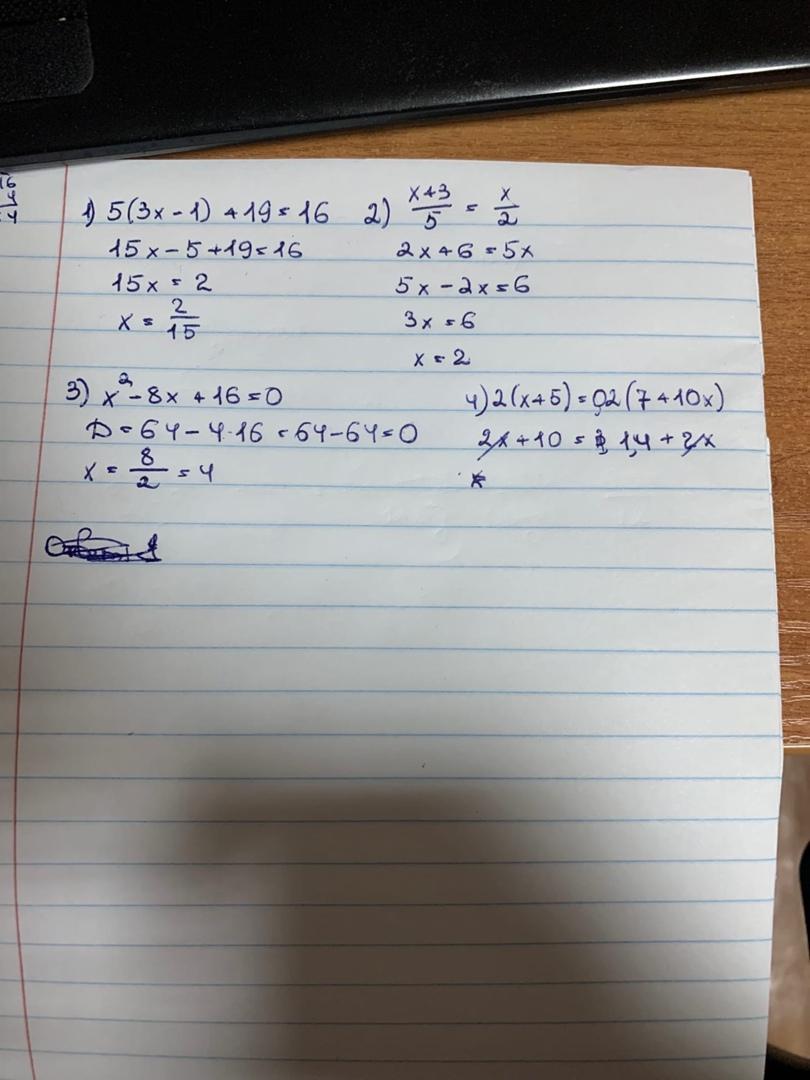 16
4
4
1) 5(3x-1)+19=16
15x-5+19=16
15x=2
x=2/15
2) (x+3)/5=x/2
2x+6=5x
5x-2x=6
3x=6
x=2
3) x²-8x+16=0
D=64-4·16=64-64=0
x=8/2=4
4) 2(x+5)=0,2(7+10x)
2x+10=1,4+2x